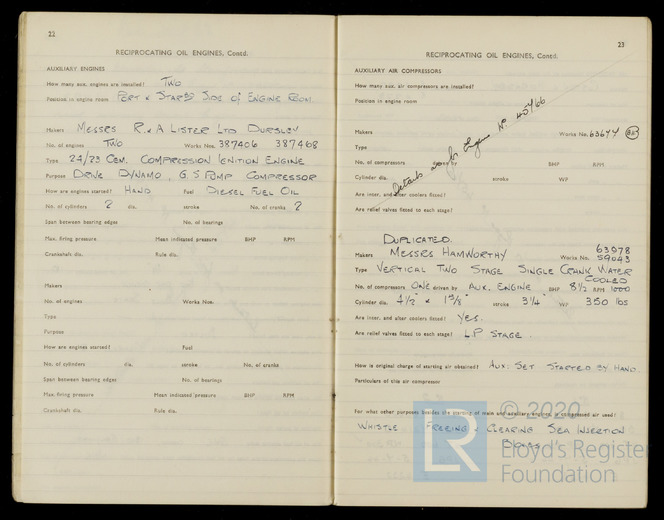 22
RECIPROCATING OIL ENGINES, Contd.
AUXILIARY ENGINES
How many aux. engines are installed? TWO
Position in engine room PORT & STARBD SIDE OF ENGINE ROOM.
Makers MESSRS R & A LISTER LTD DURSLEY
No. of engines TWO Works Nos. 387406 387408
Type 21/23 CEM. COMPRESSION IGNITION ENGINE
Purpose DRIVE DYNAMO, G.S PUMP COMPRESSOR
How are engines started? HAND Fuel DIESEL FUEL OIL
No. of cylinders 2 dia. stroke No. of cranks 2
Span between bearing edges No. of bearings
Max. firing pressure Mean indicated pressure BHP RPM
Crankshaft dia. Rule dia.
Makers
No. of engines Works Nos.
Type
Purpose
How are engines started? Fuel
No. of cylinders dia. stroke No. of cranks
Span between bearing edges No. of bearings
Max. firing pressure Mean indicated pressure BHP RPM
Crankshaft dia. Rule dia.
23
RECIPROCATING OIL ENGINES, Contd.
AUXILIARY AIR COMPRESSORS
How many aux. air compressors are installed?
Position in engine room
Makers Works No. 63644
Type
No. of compressors driven by BHP RPM
Details as for Engine No.
Cylinder dia. stroke WP
Are inter. and after coolers fitted?
Are relief valves fitted to each stage?
DUPLICATED.
63078
Makers MESSRS HAMWORTHY Works No. 59043
Type VERTICAL TWO STAGE SINGLE CRANK WATER
COOLED
No. of compressors ONE driven by AUX. ENGINE BHP 8 1/2 RPM 1000
Cylinder dia. 4 1/2" & 1 5/8" stroke 3 1/4" WP 350 lbs
Are inter. and after coolers fitted? YES.
Are relief valves fitted to each stage? LP STAGE.
How is original charge of starting air obtained? AUX. SET STARTED BY HAND.
Particulars of this air compressor
For what other purposes besides the starting of main and auxiliary engines, is compressed air used?
WHISTLE FREEING & CLEARING SEA INSERTION
LR
© 2020
Lloyd's Register
Foundation